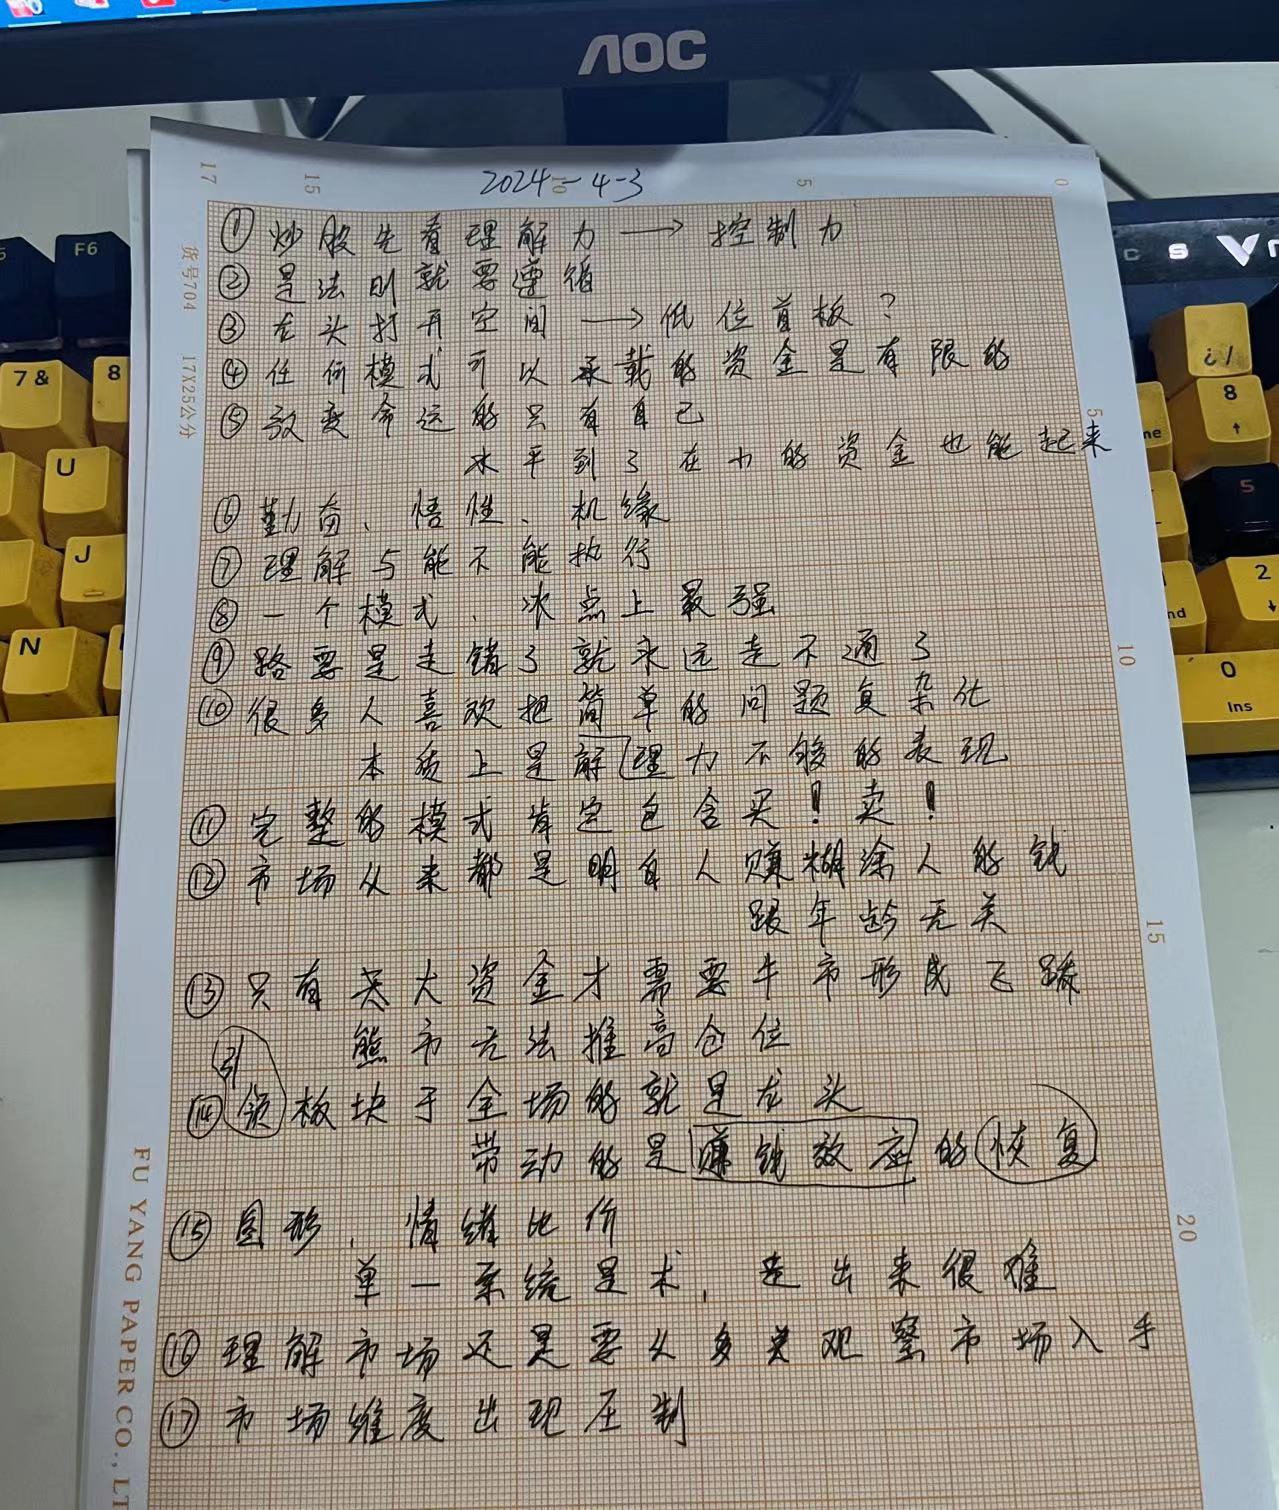 AOC
2024-4-3
17 15 10 5 0
货号704 17X25公分
① 炒股先看理解力 → 控制力
② 是法则就要遵循
③ 龙头打开空间 → 低位首板？
④ 任何模式可以承载的资金是有限的
⑤ 改变命运的只有自己
水平到了在小的资金也能起来
⑥ 勤奋、悟性、机缘
⑦ 理解与能不能执行
⑧ 一个模式、冰点上最强
⑨ 路要是走错了就永远走不通了
⑩ 很多人喜欢把简单的问题复杂化
本质上是解理力不够的表现
⑪ 完整的模式肯定包含买！卖！
⑫ 市场从来都是明白人赚糊涂人的钱
跟年龄无关
⑬ 只有大资金才需要牛市形成飞跃
熊市无法推高仓位
⑭ 引领板块于全场的就是龙头
带动的是赚钱效应的恢复
⑮ 图形、情绪比价
单一系统是术，走出来很难
⑯ 理解市场还是要从多观察市场入手
⑰ 市场维度出现压制
5
10
15
20
FU YANG PAPER CO., LT
F6
7 &
8
U
J
N
8
5
2
0
Ins